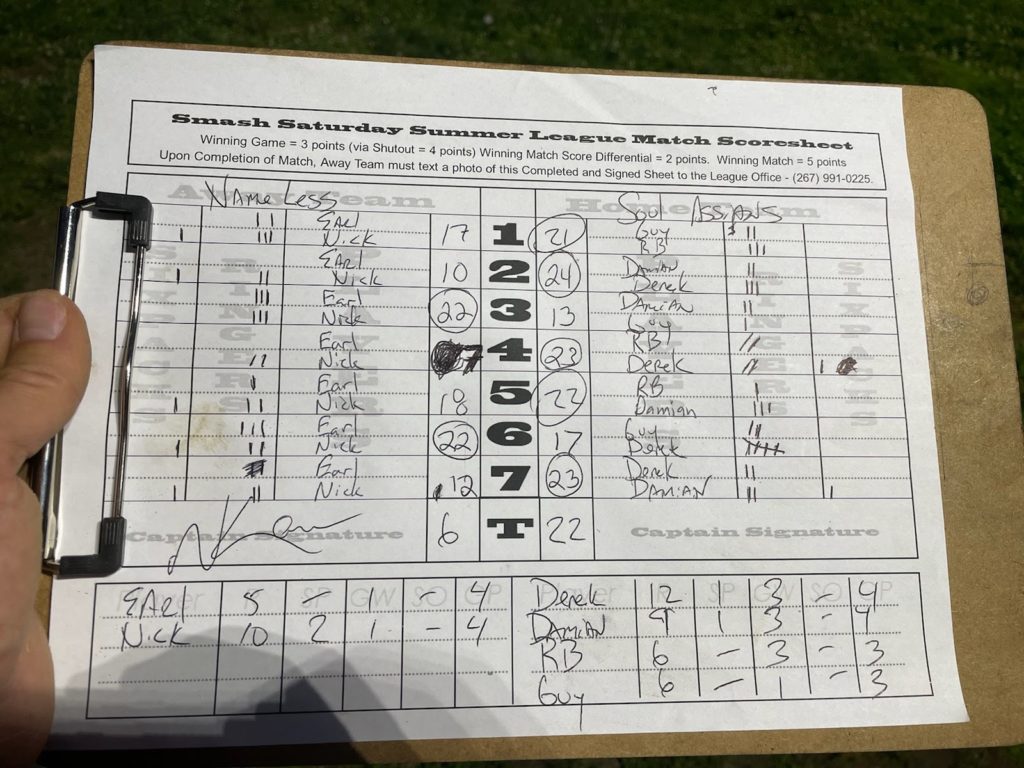 Smash Saturday Summer League Match Scoresheet
Winning Game = 3 points (via Shutout = 4 points) Winning Match Score Differential = 2 points. Winning Match = 5 points
Upon Completion of Match, Away Team must text a photo of this Completed and Signed Sheet to the League Office - (267) 991-0225.
Away Team Home Team
NAMELESS Soul ASSIANS
EARL Guy
Nick 17 1 21 RB
EARL DAMIAN
Nick 10 2 24 Derek
Earl DAMIAN
Nick 22 3 13 Guy
Earl RB
Nick 7 4 23 Derek
Earl RB
Nick 18 5 22 Damian
Earl Guy
Nick 22 6 17 Derek
Earl Derek
Nick 12 7 23 DAMIAN
Captain Signature 6 T 22 Captain Signature
SP GW SO GP SP GW SO GP
EARL 5 – 1 – 4 Derek 12 1 3 – 4
Nick 10 2 1 – 4 DAMIAN 9 1 3 – 4
RB 6 – 3 – 3
Guy 6 – 1 – 3